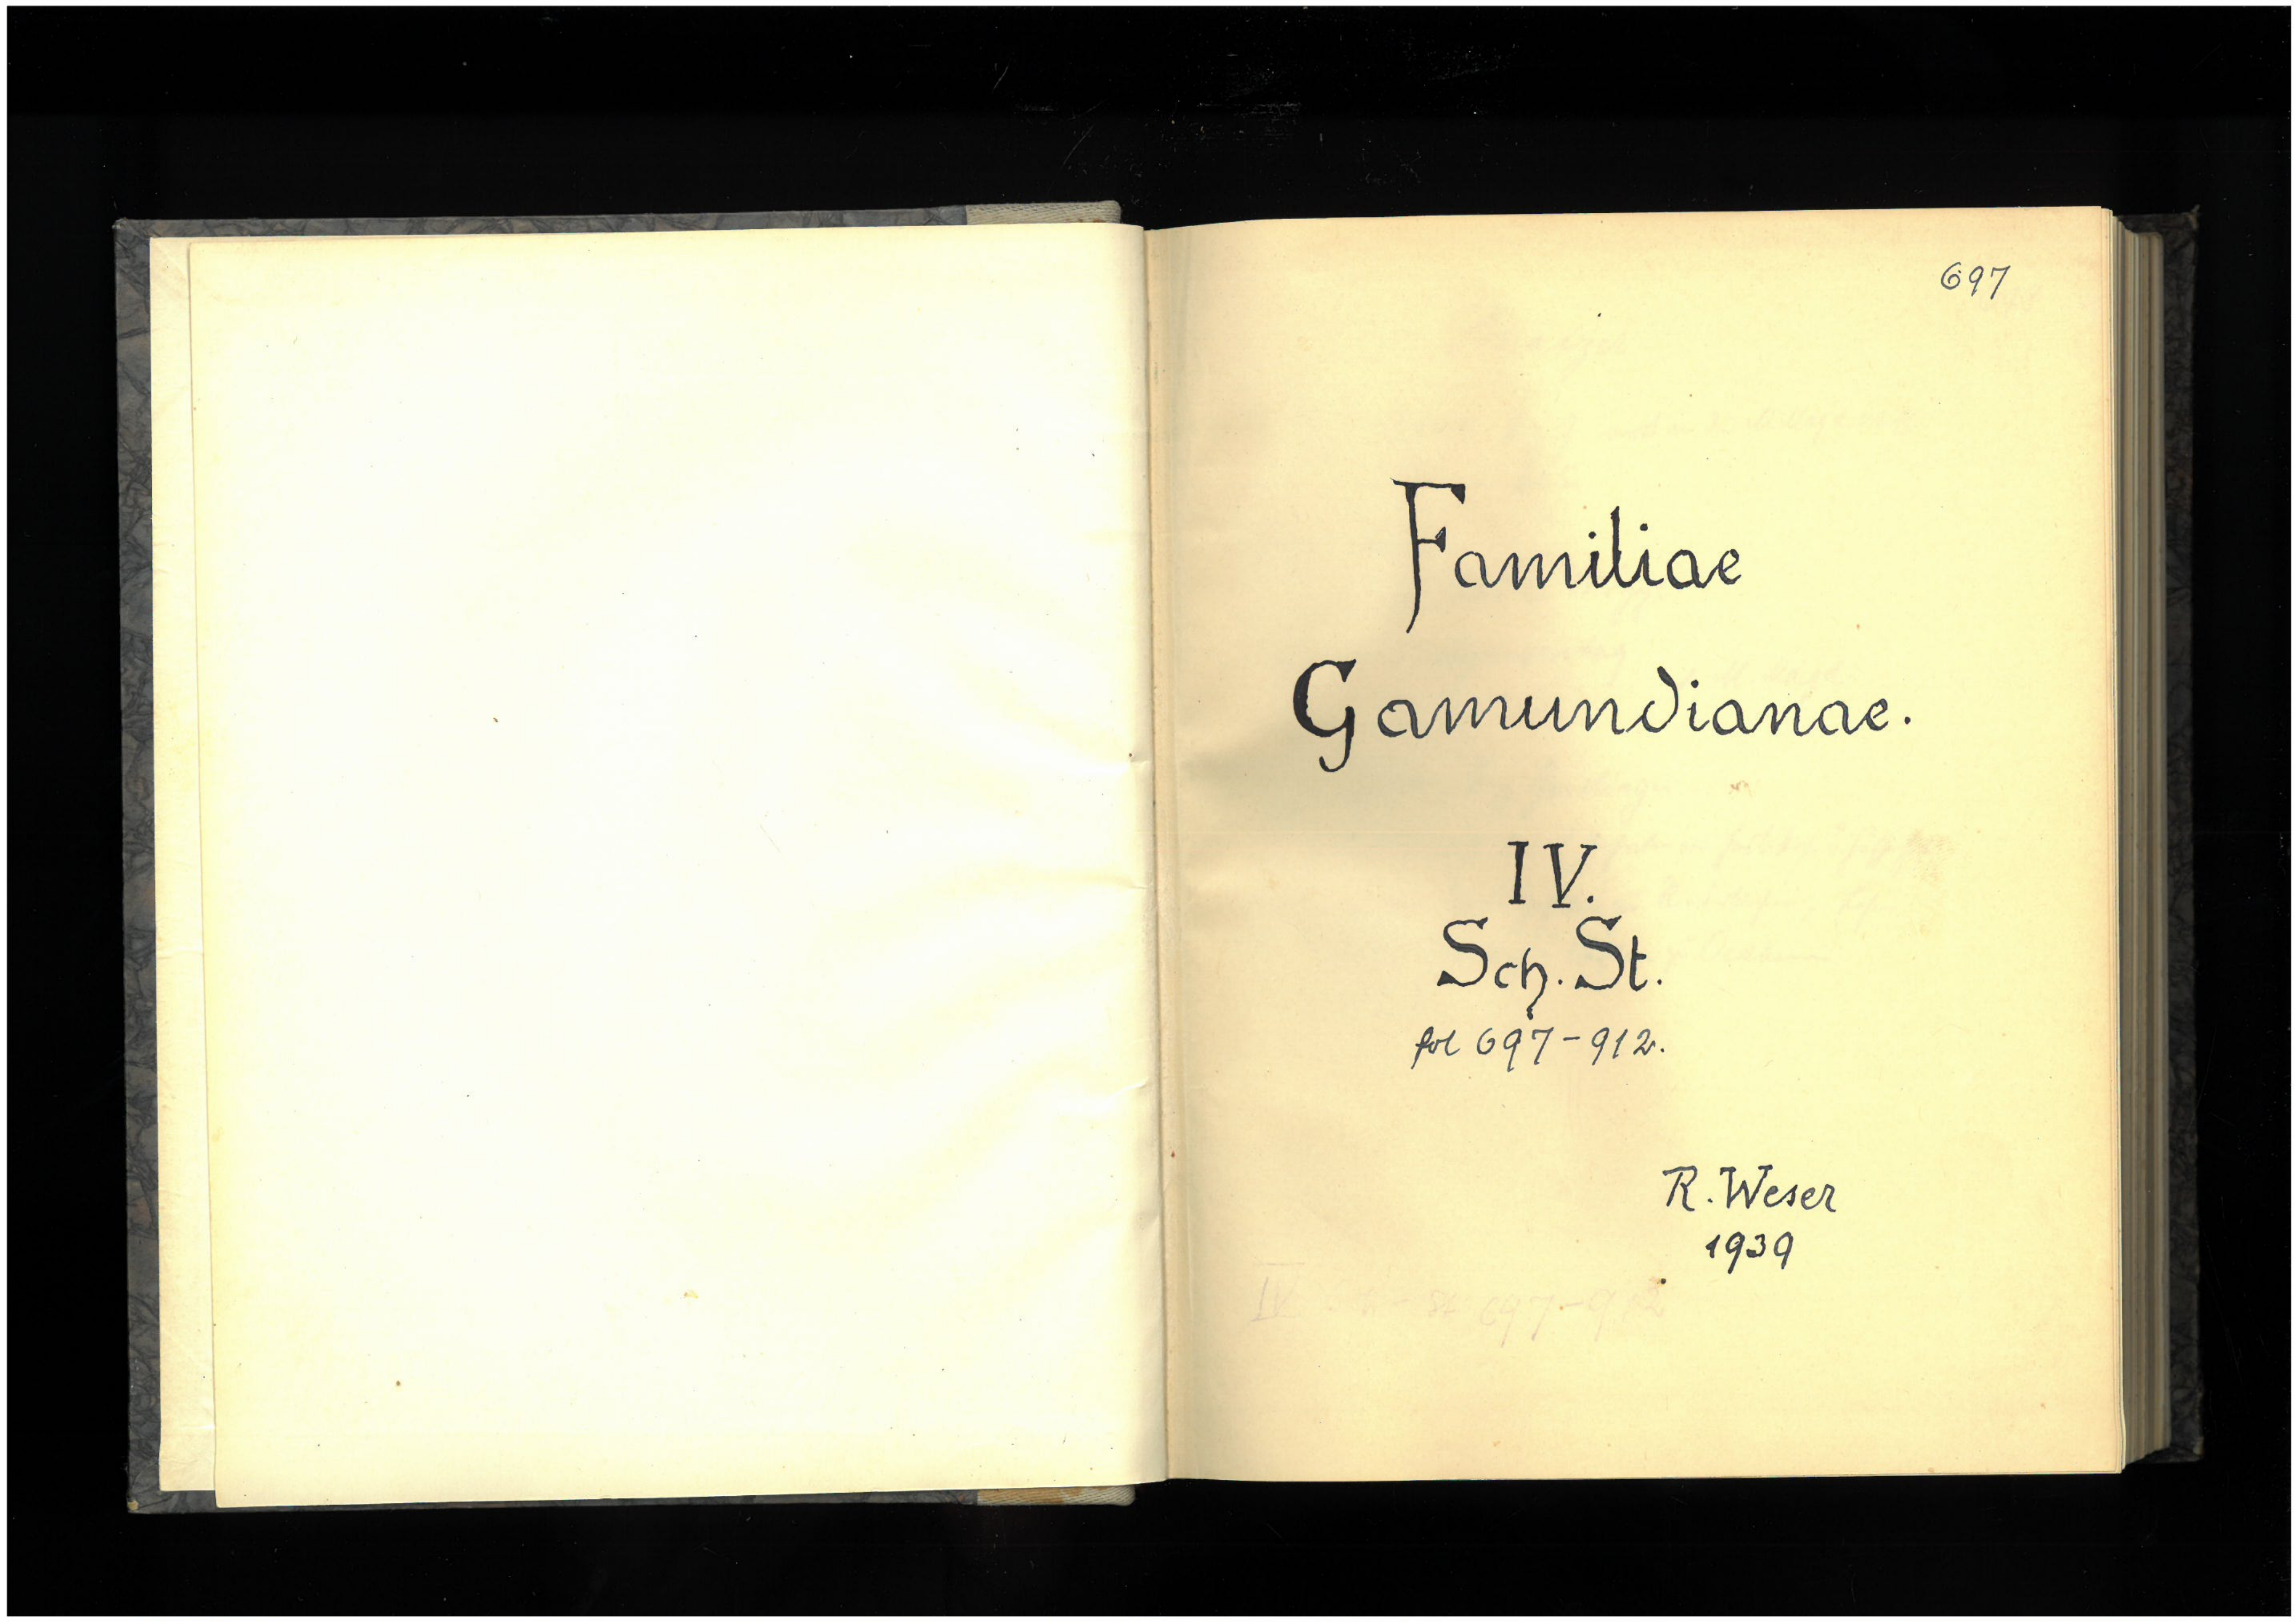 697
Familiae
Gamundianae.
IV.
Sch. St.
fol 697-912.
R. Weser
1939
IV 697-912